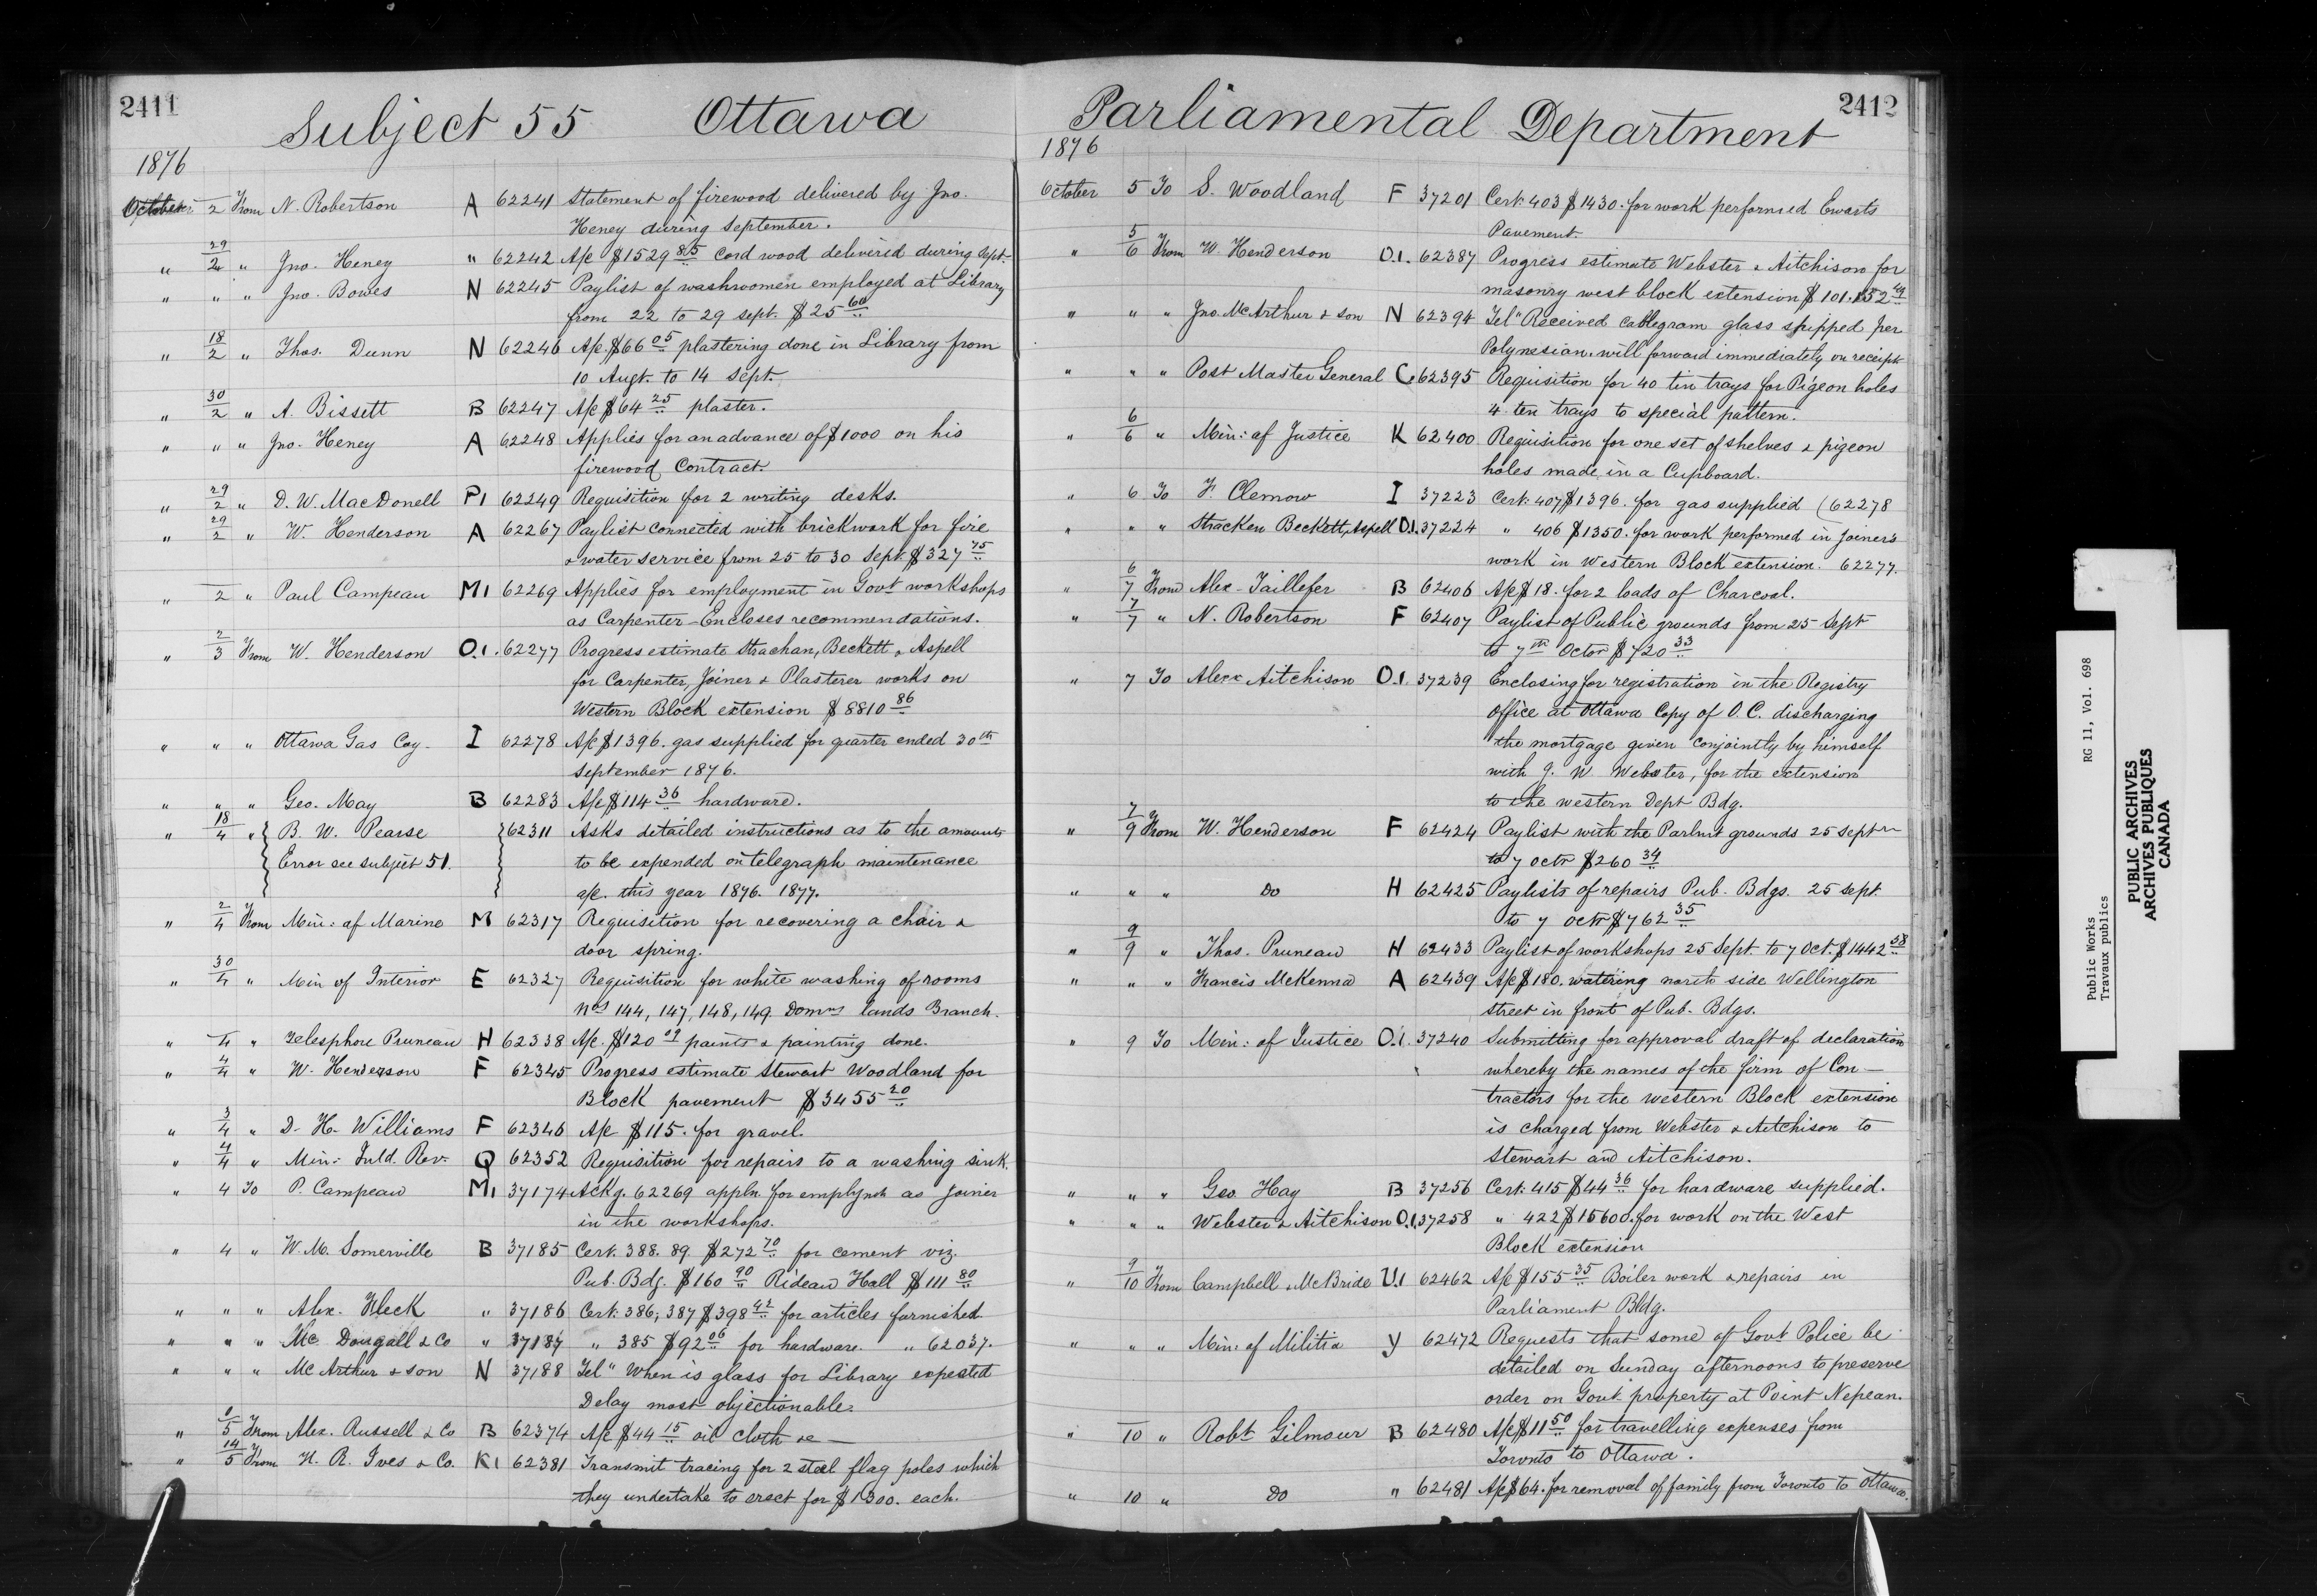 2411
Subject 55 Ottawa
1876
October 2 From N. Robertson A 62241 Statement of firewood delivered by Jno.
Heney during September.
" 29/2 " Jno. Heney " 62242 A/c $1529 85 Cord wood delivered during Sept.
" " " Jno. Bowes N 62245 Paylist of washwomen employed at Library
from 22 to 29 Sept. $25 60
" 18/2 " Thos. Dunn N 62246 A/c $66 05 plastering done in Library from
10 Augt. to 14 Sept.
" 30/2 " A. Bissett B 62247 A/c $64 25 plaster.
" " " Jno. Heney A 62248 Applies for an advance of $1000 on his
firewood Contract.
" 29/2 " D. W. MacDonell P1 62249 Requisition for 2 writing desks.
" 29/2 " W. Henderson A 62267 Paylist connected with brickwork for fire
& water service from 25 to 30 Sept. $327 75
" 2 " Paul Campeau M1 62269 Applies for employment in Govt workshops
as Carpenter - Encloses recommendations.
" 2/3 From W. Henderson O.1. 62277 Progress estimate Strachan, Beckett & Aspell
for Carpenter, Joiner & Plasterer works on
Western Block extension $8810 86
" " " Ottawa Gas Coy. I 62278 A/c $1396. gas supplied for quarter ended 30th
September 1876.
" " " Geo. May B 62283 A/c $114 36 hardware.
" 18/4 " B. W. Pearse 62311 Asks detailed instructions as to the amounts
Error see subject 51. to be expended on telegraph maintenance
a/c. this year 1876. 1877.
" 2/4 From Min: of Marine M 62317 Requisition for recovering a chair &
door spring.
" 30/4 " Min of Interior E 62327 Requisition for white washing of rooms
Nos 144, 147, 148, 149. Domns lands Branch.
" 4 " Telesphore Pruneau H 62338 A/c. $120 09 paints & painting done.
" 4/4 " W. Henderson F 62345 Progress estimate Stewart Woodland for
Block pavement $3455 20
" 3/4 " D. H. Williams F 62346 A/c $115. for gravel.
" 4/4 " Min: Inld. Rev. Q 62352 Requisition for repairs to a washing sink.
" 4 To P. Campeau M1 37174 Ackg. 62269 appln. for emplymt as Joiner
in the workshops.
" 4 " W. M. Somerville B 37185 Cert. 388. 89. $272 70 for cement viz.
Pub. Bdg. $160 90 Rideau Hall $111 80
" " " Alex. Fleck " 37186 Cert. 386, 387 $398 42 for articles furnished.
" " " Mc Dougall & Co " 37187 " 385 $92 06 for hardware. " 62037.
" " " McArthur & son N 37188 Tel" When is glass for Library expected
Delay most objectionable.
" 5 From Alex. Russell & Co B 62374 A/c $44 15 oil cloth &c
" 14/5 From H. R. Ives & Co. K1 62381 Transmit tracing for 2 steel flag poles which
they undertake to erect for $1300. each.
2412
Parliamental Department
1876
October 5 To S. Woodland F 37201 Cert: 403 $1430. for work performed Ewarts
Pavement.
" 5/6 From W. Henderson O.1. 62387 Progress estimate Webster & Aitchison for
masonry west block extension $101.152 49
" " " Jno. McArthur & son N 62394 Tel" Received cablegram glass shipped per
Polynesian. will forward immediately on receipt
" " " Post Master General C 62395 Requisition for 40 tin trays for Pigeon holes
4 ten trays to special pattern.
" 6/6 " Min: of Justice K 62400 Requisition for one set of shelves & pigeon
holes made in a Cupboard.
" 6 To F. Clemow I 37223 Cert: 407 $1396. for gas supplied (62278
" " " Stracken Beckett, Aspell O.1. 37224 " 406 $1350. for work performed in joiners
work in Western Block extension. 62277.
" 6/7 From Alex. Taillefer B 62406 A/c $18. for 2 loads of Charcoal.
" 7/7 " N. Robertson F 62407 Paylist of Public grounds from 25 Sept
to 7th Octor $720 33
" 7 To Alexr Aitchison O.1. 37239 Enclosing for registration in the Registry
Office at Ottawa Copy of O. C. discharging
the mortgage given conjointly by himself
with J. W. Webster, for the extension
to the western Dept Bdg.
" 7/9 From W. Henderson F 62424 Paylist with the Parlmt grounds 25 septr
to 7 octr $260 34
" " " Do H 62425 Paylists of repairs Pub. Bdgs. 25 sept.
to 7 octr $762 35
" 9/9 " Thos. Pruneau H 62433 Paylist of workshops 25 Sept. to 7 Oct. $1442 58
" " " Francis McKenna A 62439 A/c $180. watering north side Wellington
street in front of Pub. Bdgs.
" 9 To Min: of Justice O.1. 37240 Submitting for approval draft of declaration
whereby the names of the firm of Con-
tractors for the western Block extension
is charged from Webster & Aitchison to
Stewart and Aitchison.
" " " Geo. Hay B 37256 Cert: 415 $44 36 for hardware supplied.
" " " Webster & Aitchison O.1. 37258 " 422 $15600. for work on the West
Block extension
" 9/10 From Campbell & McBride U.1 62462 A/c $155 35 Boiler work & repairs in
Parliament Bldg.
" " " Min: of Militia Y 62472 Requests that some of Govt Police be
detailed on Sunday afternoons to preserve
order on Govt property at Point Nepean.
" 10 " Robt Gilmour B 62480 A/c $11 50 for travelling expenses from
Toronto to Ottawa.
" 10 " Do " 62481 A/c $64. for removal of family from Toronto to Ottawa.
Public Works RG 11, Vol. 698
Travaux publics
PUBLIC ARCHIVES
ARCHIVES PUBLIQUES
CANADA